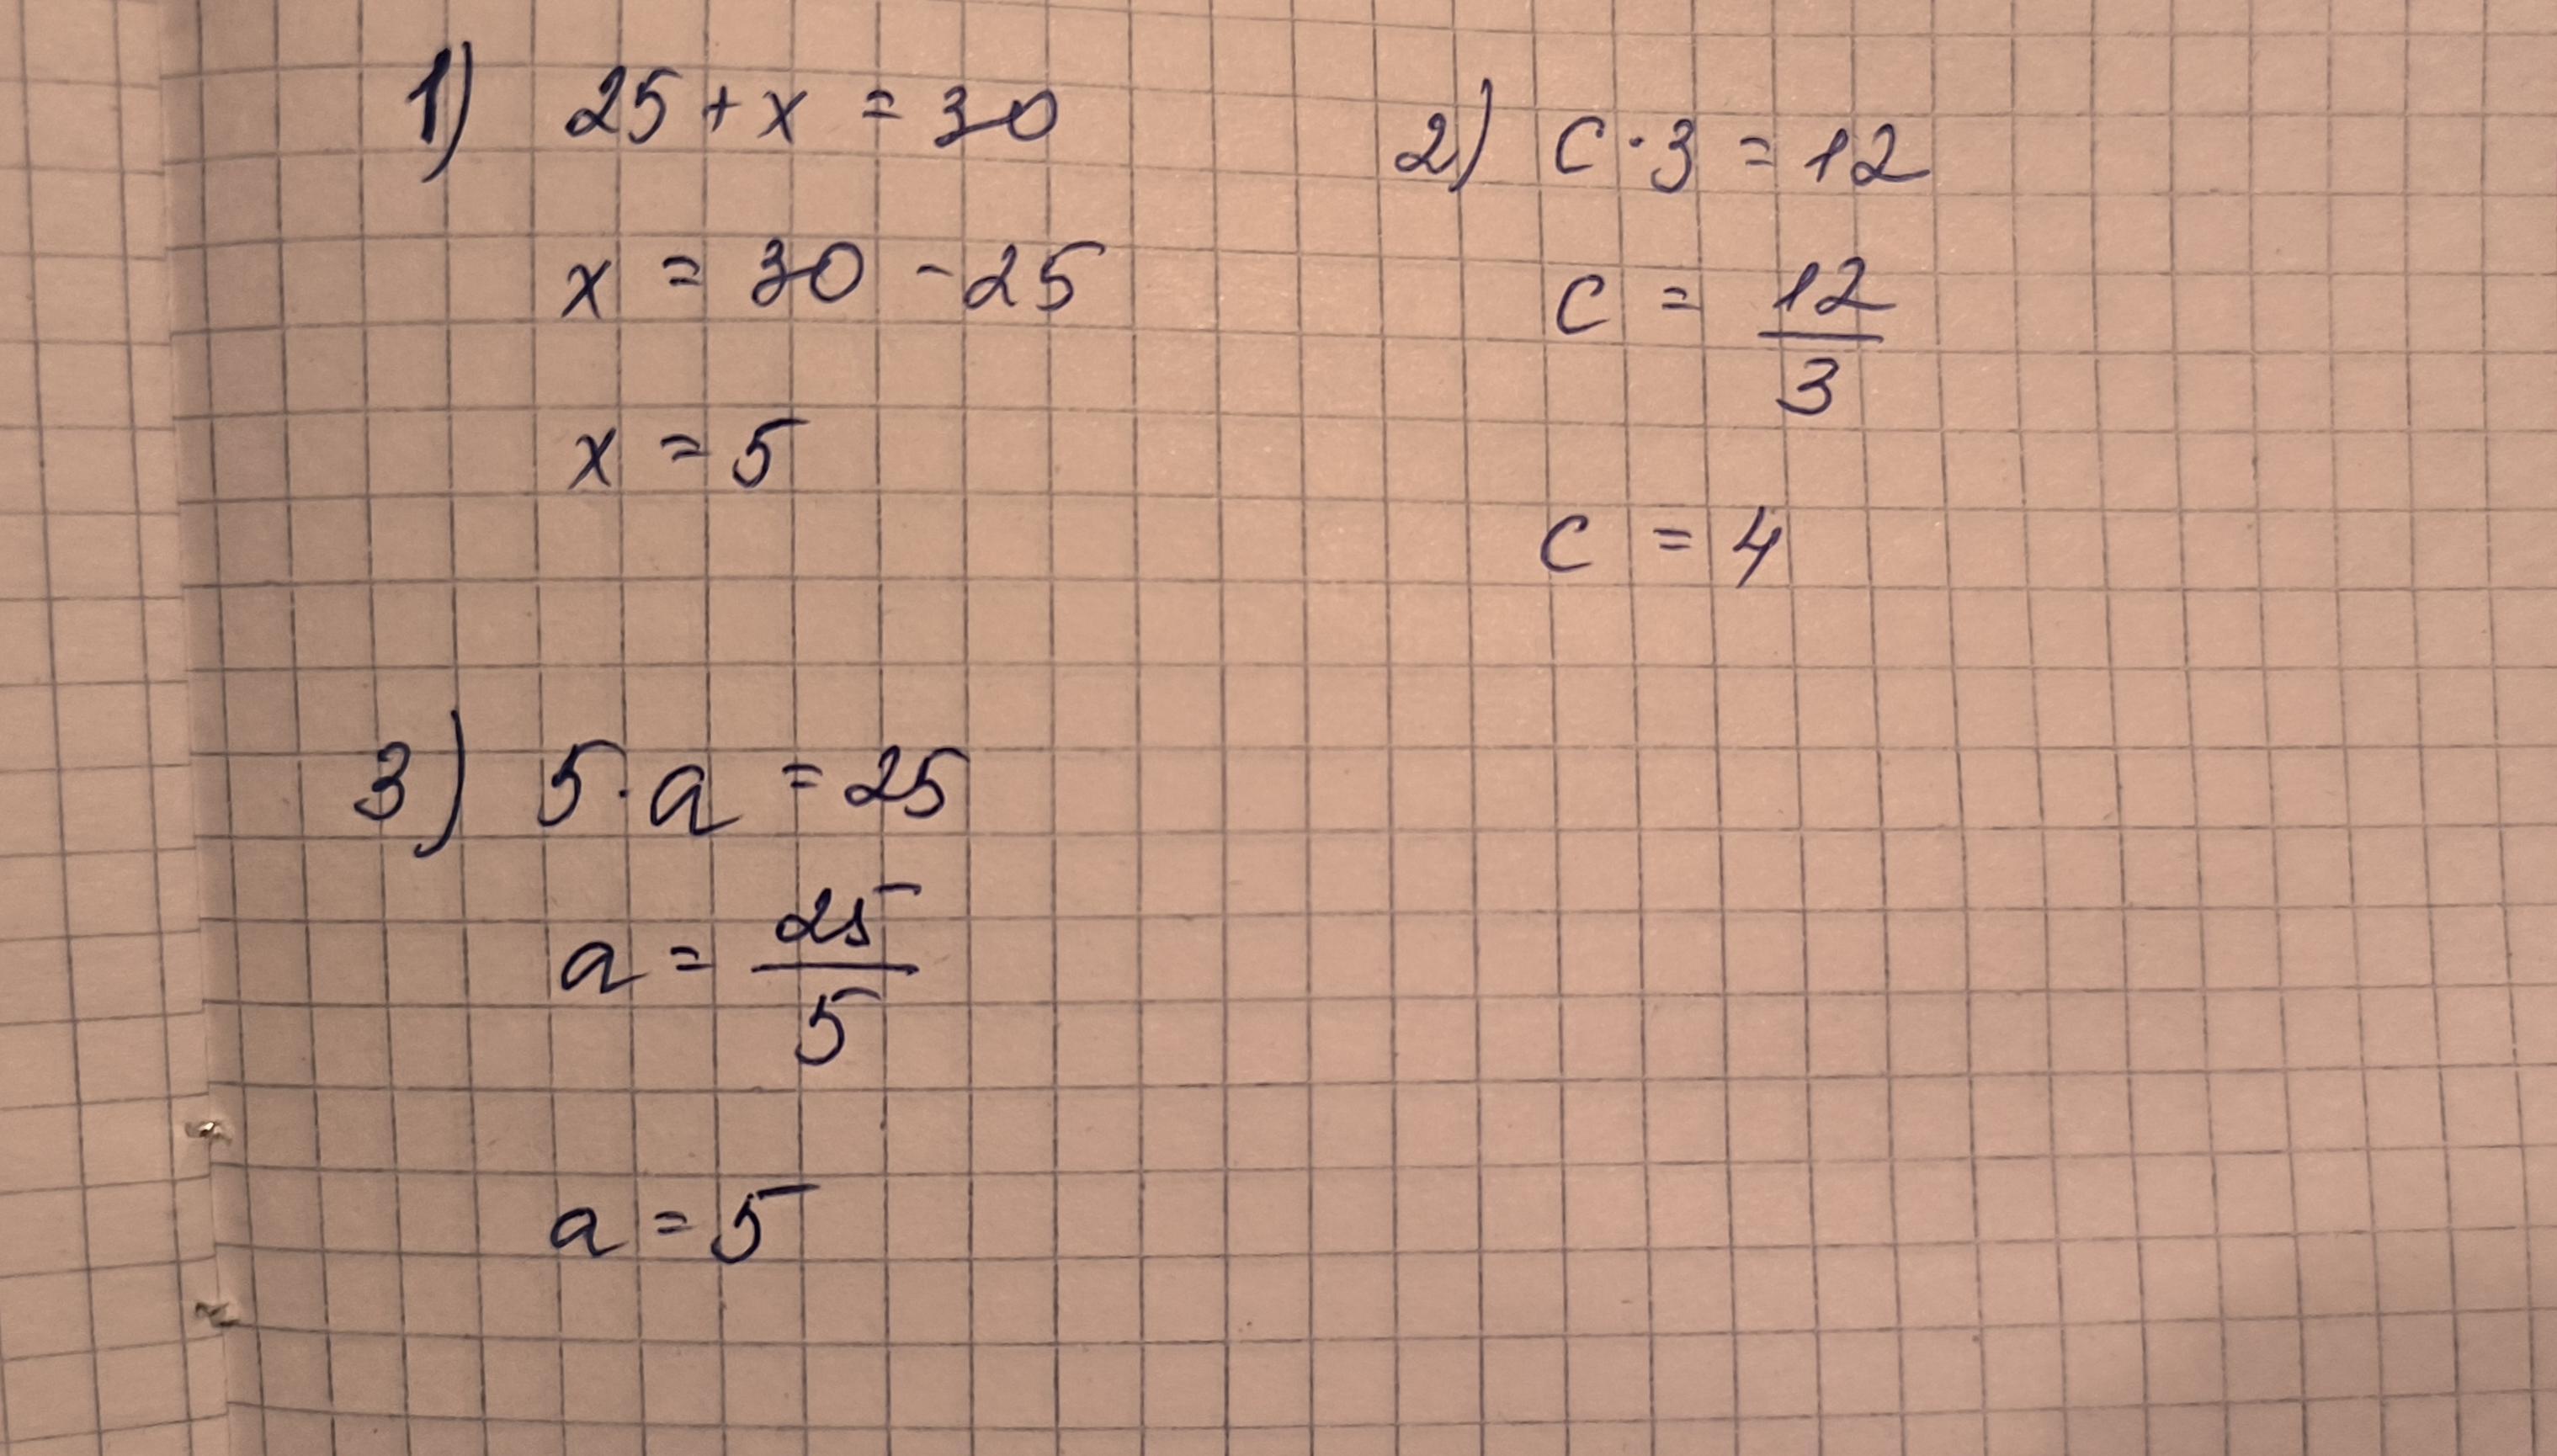 1) 25 + x = 30
x = 30 - 25
x = 5
2) c · 3 = 12
c = 12/3
c = 4
3) 5 · a = 25
a = 25/5
a = 5